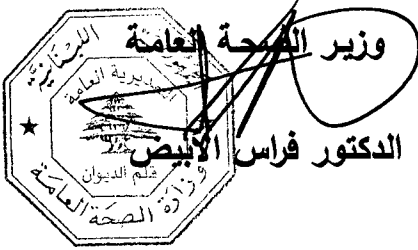 وزير الصحة العامة
الدكتور فراس الأبيض
اللبنانية
المديرية العامة
قلم الديوان
وزارة الصحة العامة